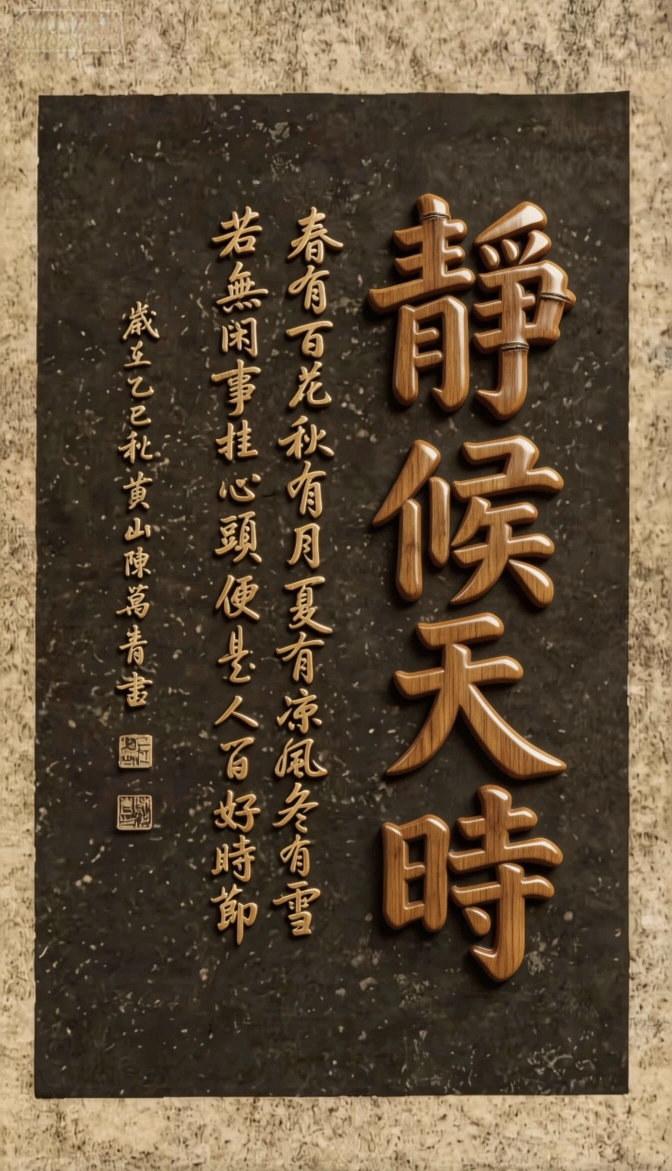 靜候天時
春有百花秋有月夏有凉風冬有雪
若無闲事挂心頭便是人百好時節
歲在乙巳秋黄山陳萬青書